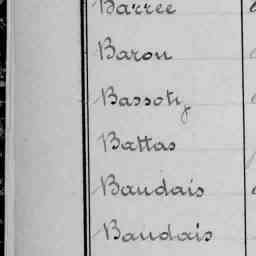 Barrée
Baron
Bassoty
Battas
Baudais
Baudais